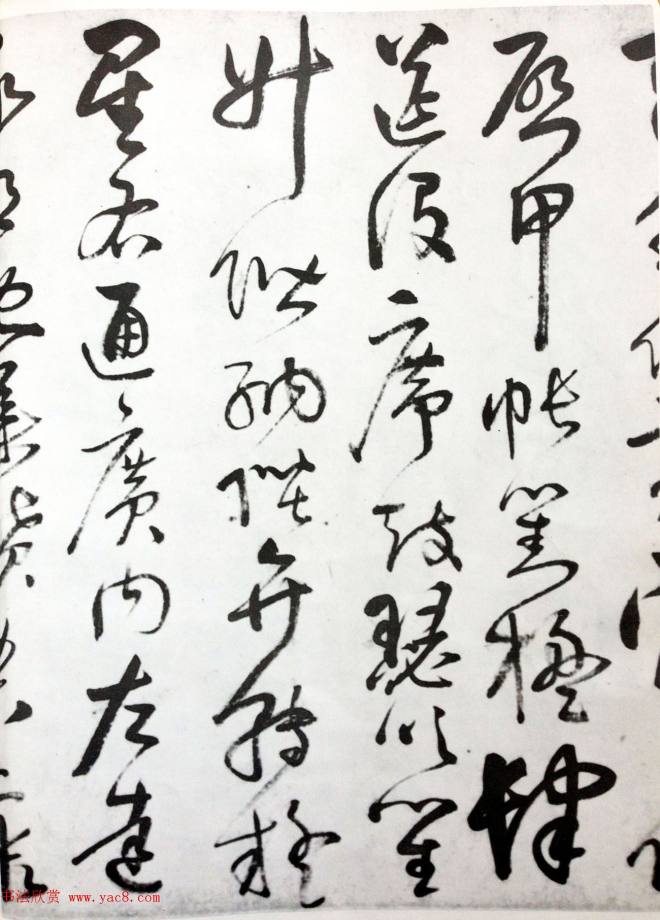 啟甲帳對楹肆
筵設席鼓瑟吹笙
升階納陛弁轉疑
星右通廣內左達
明既集墳典
书法欣赏 www.yac8.com